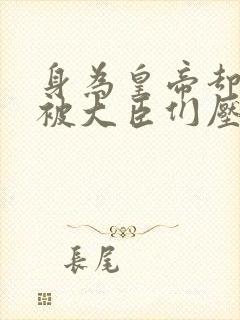 身為皇帝卻
被大臣們壓
長尾